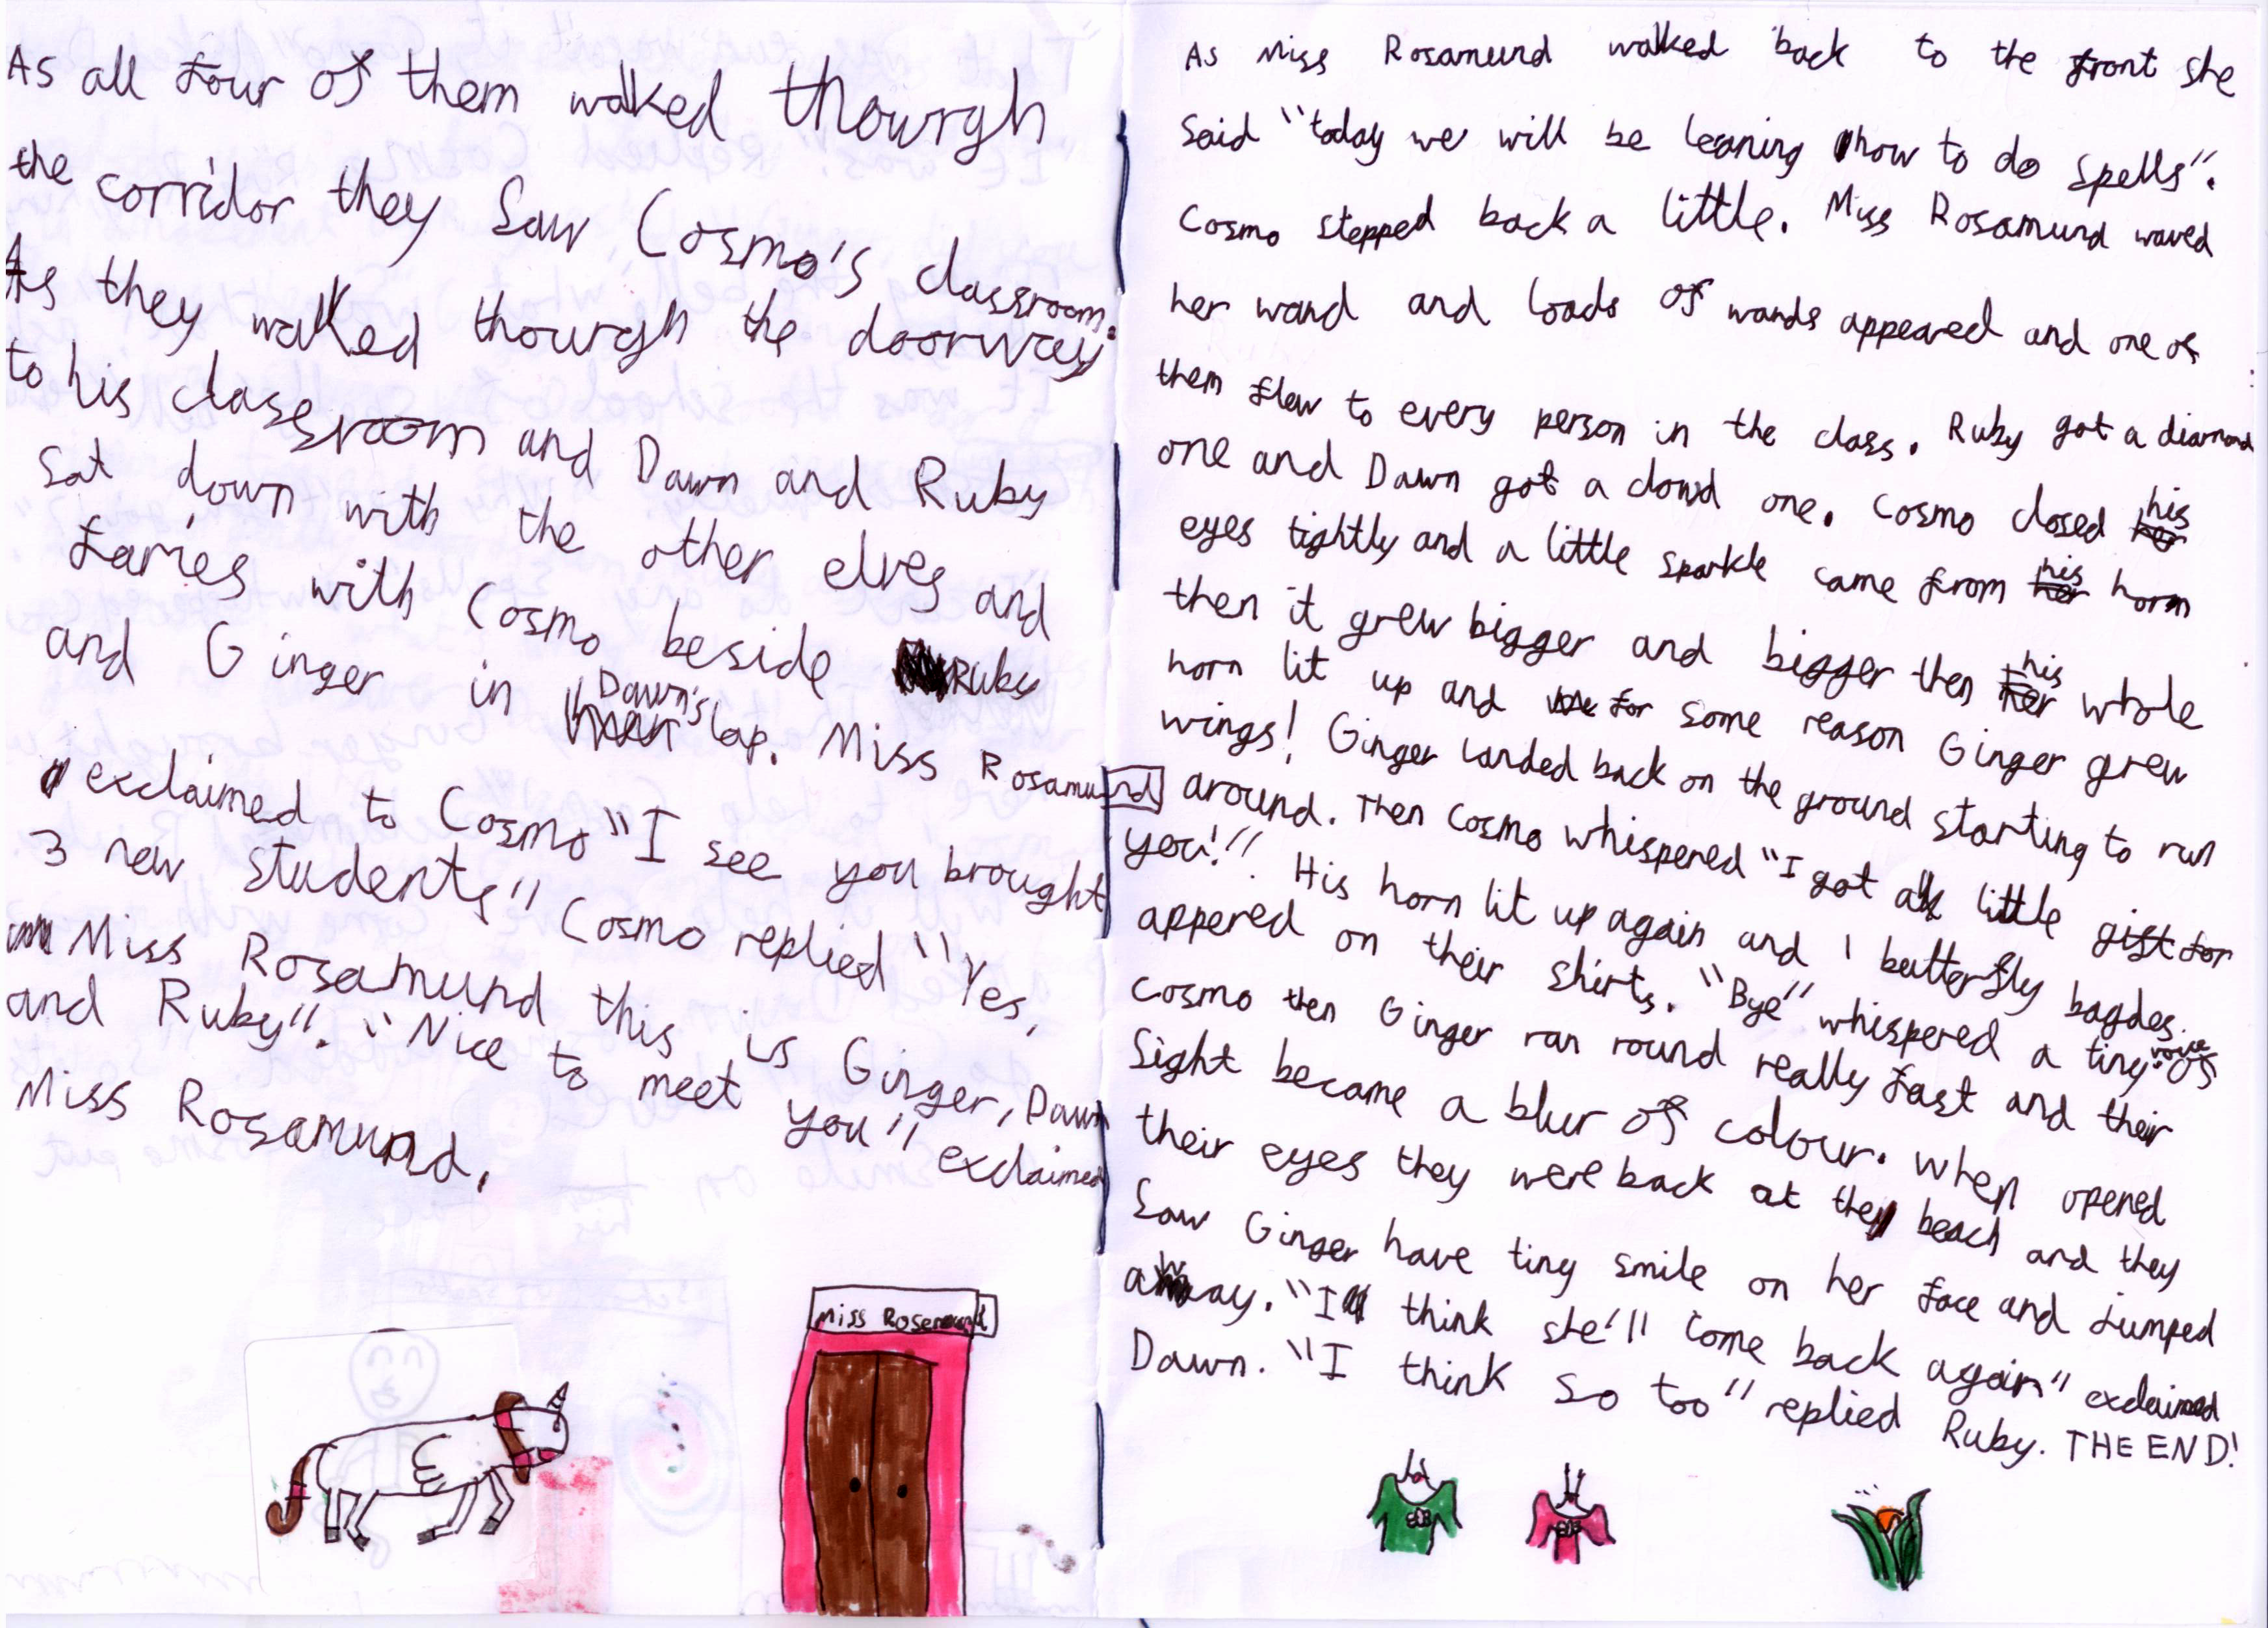 As all four of them walked thourgh
the corridor they saw Cosmo's classroom.
As they walked thourgh the doorway
to his classroom and Dawn and Ruby
sat down with the other elves and
faries with Cosmo beside Ruby
and Ginger in Dawn's lap. Miss Rosamund
exclaimed to Cosmo "I see you brought
3 new students" Cosmo replied "Yes,
Miss Rosamund this is Ginger, Dawn
and Ruby". "Nice to meet you" exclaimed
Miss Rosamund.
Miss Rosemund
As Miss Rosamund walked back to the front she
said "today we will be leaning how to do spells".
Cosmo stepped back a little. Miss Rosamund waved
her wand and loads of wands appeared and one of
them flew to every person in the class. Ruby got a diamond
one and Dawn got a cloud one. Cosmo closed his
eyes tightly and a little sparkle came from his horn
then it grew bigger and bigger then his whole
horn lit up and for some reason Ginger grew
wings! Ginger landed back on the ground starting to run
around. Then Cosmo whispered "I got a little gift for
you!". His horn lit up again and 1 butterfly bagdes
appered on their shirts. "Bye" whispered a tiny voice of
Cosmo then Ginger ran round really fast and their
sight became a blur of colour. When opened
their eyes they were back at the beach and they
saw Ginger have tiny smile on her face and jumped
away. "I think she'll come back again" exclaimed
Dawn. "I think so too" replied Ruby. THE END!